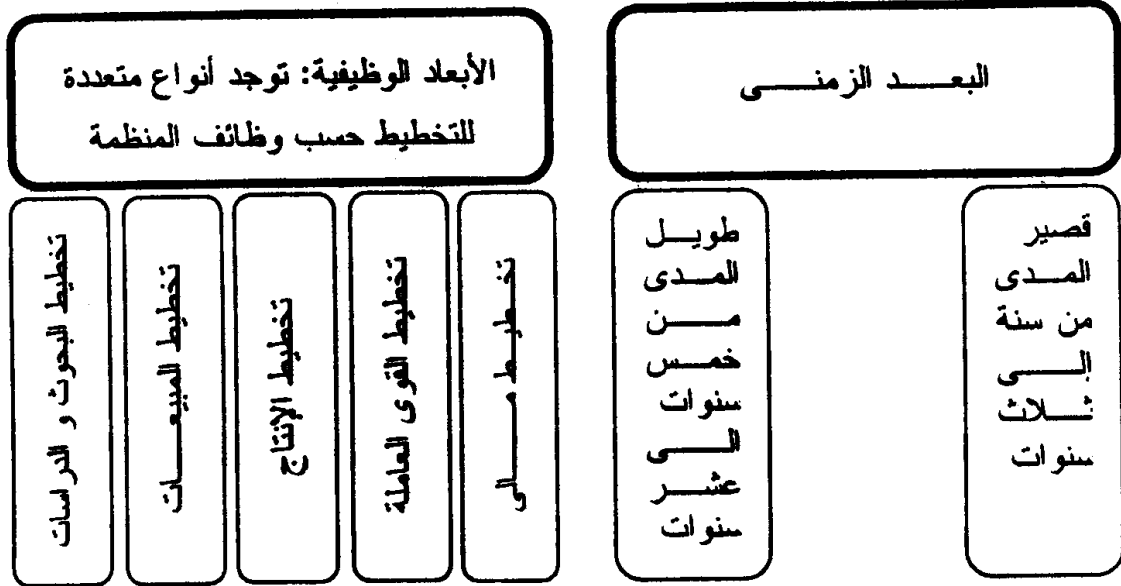 البعد الزمنى
قصير
المدى
من سنة
إلى
ثلاث
سنوات
طويل
المدى
من
خمس
سنوات
الى
عشر
سنوات
الأبعاد الوظيفية: توجد أنواع متعددة
للتخطيط حسب وظائف المنظمة
تخطيط مالى
تخطيط القوى العاملة
تخطيط الإنتاج
تخطيط المبيعات
تخطيط البحوث و الدراسات